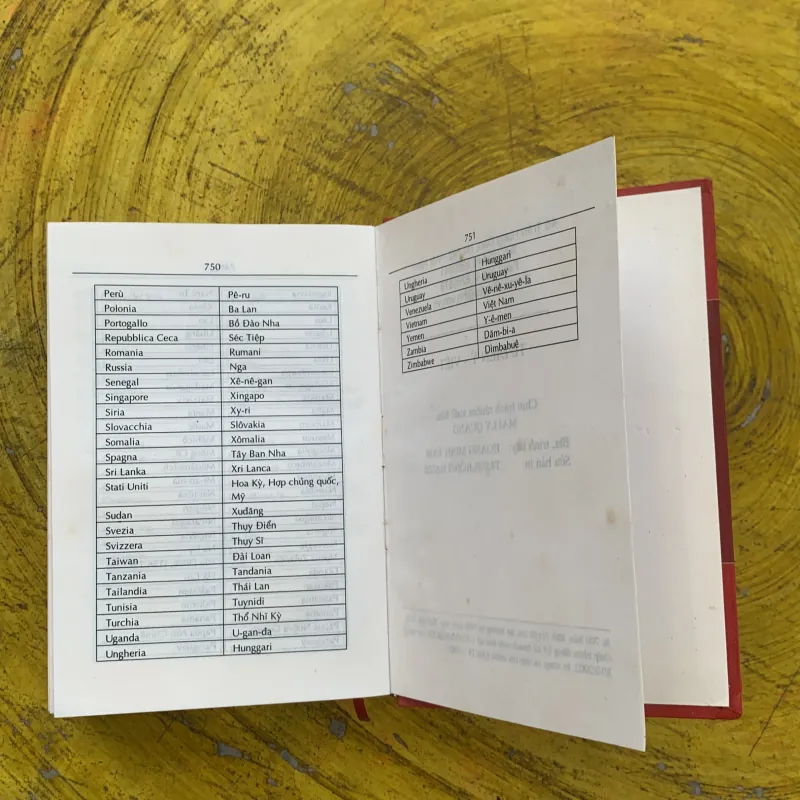 750
Perù Pê-ru
Polonia Ba Lan
Portogallo Bồ Đào Nha
Repubblica Ceca Séc Tiệp
Romania Rumani
Russia Nga
Senegal Xê-nê-gan
Singapore Xingapo
Siria Xy-ri
Slovacchia Slôvakia
Somalia Xômalia
Spagna Tây Ban Nha
Sri Lanka Xri Lanca
Stati Uniti Hoa Kỳ, Hợp chủng quốc,
Mỹ
Sudan Xuđăng
Svezia Thụy Điển
Svizzera Thụy Sĩ
Taiwan Đài Loan
Tanzania Tandania
Tailandia Thái Lan
Tunisia Tuynidi
Turchia Thổ Nhĩ Kỳ
Uganda U-gan-đa
Ungheria Hunggari
751
Ungheria Hunggari
Uruguay Uruguay
Venezuela Vê-nê-xu-yê-la
Vietnam Việt Nam
Yemen Y-ê-men
Zambia Dăm-bi-a
Zimbabwe Dimbabuê